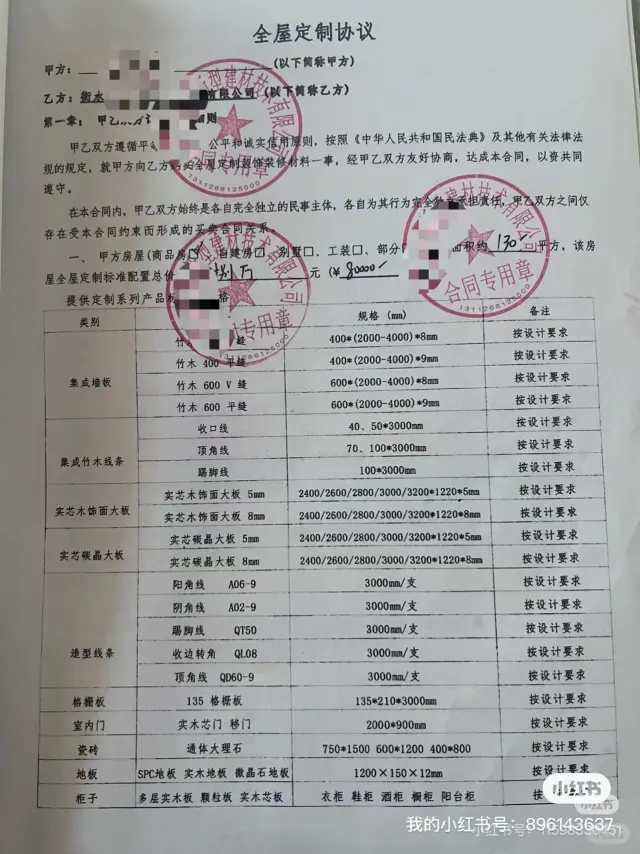 全屋定制协议
甲方： (以下简称甲方)
乙方：衡水 有限公司 (以下简称乙方)
第一章：甲乙双方 细则
甲乙双方遵循平 公平和诚实信用原则，按照《中华人民共和国民法典》及其他有关法律法
规的规定，就甲方向乙方 全屋定制装饰装修材料一事，经甲乙双方友好协商，达成本合同，以资共同
遵守。
在本合同内，甲乙双方始终是各自完全独立的民事主体，各自为其行为完全独立承担责任，甲乙双方之间仅
存在受本合同约束而形成的买卖合同关系。
一、甲方房屋(商品房☑ 自建房□ 别墅□、工装□、部分 面积约 130 平方，该房
屋全屋定制标准配置总价 捌万 元 (¥ 80000
提供定制系列产品 格
类别 规格 (mm) 备注
集成墙板
竹木 缝 400*(2000-4000)*8mm 按设计要求
竹木 400 平缝 400*(2000-4000)*9mm 按设计要求
竹木 600 V 缝 600*(2000-4000)*8mm 按设计要求
竹木 600 平缝 600*(2000-4000)*9mm 按设计要求
集成竹木线条
收口线 40、50*3000mm 按设计要求
顶角线 70、100*3000mm 按设计要求
踢脚线 100*3000mm 按设计要求
实芯木饰面大板
实芯木饰面大板 5mm 2400/2600/2800/3000/3200*1220*5mm 按设计要求
实芯木饰面大板 8mm 2400/2600/2800/3000/3200*1220*8mm 按设计要求
实芯碳晶大板
实芯碳晶大板 5mm 2400/2600/2800/3000/3200*1220*5mm 按设计要求
实芯碳晶大板 8mm 2400/2600/2800/3000/3200*1220*8mm 按设计要求
造型线条
阳角线 A06-9 3000mm/支 按设计要求
阴角线 A02-9 3000mm/支 按设计要求
踢脚线 QT50 3000mm/支 按设计要求
收边转角 QL08 3000mm/支 按设计要求
顶角线 QD60-9 3000mm/支 按设计要求
格栅板 135 格栅板 135*210*3000mm 按设计要求
室内门 实木芯门 移门 2000*900mm 按设计要求
瓷砖 通体大理石 750*1500 600*1200 400*800 按设计要求
地板 SPC地板 实木地板 微晶石地板 1200×150×12mm 按设计要求
柜子 多层实木板 颗粒板 实木芯板 衣柜 鞋柜 酒柜 橱柜 阳台柜 按
型建材技术有限公司
合同专用章
1311268125000
建材技术有限公司
合同专用章
1311268125000
型建材技术有限公司
专用章
1311268125000
小红书
我的小红书号：896143637
小红书
小红书号：